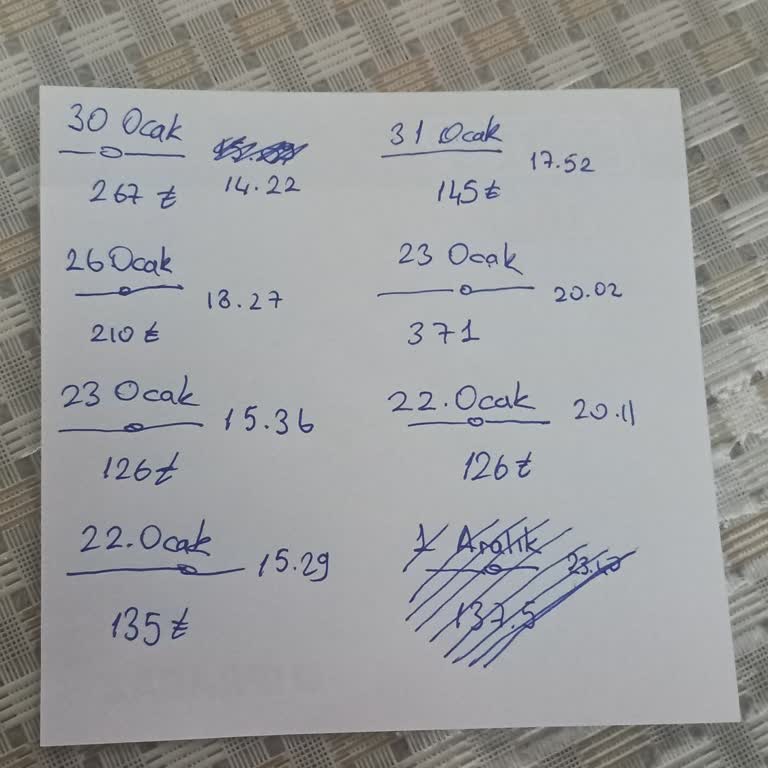 30 Ocak
14.22
267 ₺
31 Ocak
17.52
145 ₺
26 Ocak
18.27
210 ₺
23 Ocak
20.02
371
23 Ocak
15.36
126 ₺
22.Ocak
20.11
126 ₺
22.Ocak
15.29
135 ₺
1 Aralık
137.5